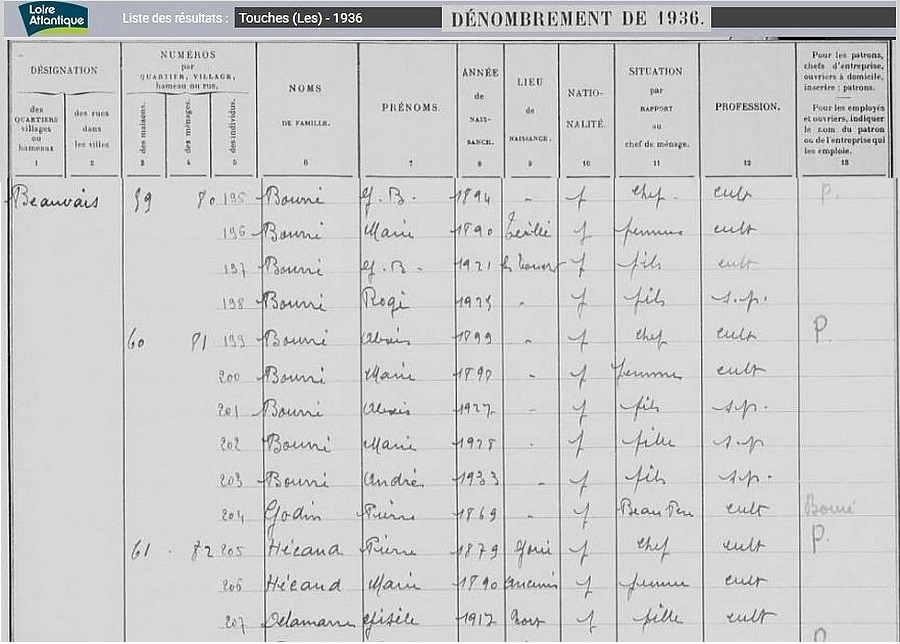 Loire
Atlantique
Liste des résultats : Touches (Les) - 1936
DÉNOMBREMENT DE 1936.
DÉSIGNATION
des QUARTIERS villages ou hameaux
des rues dans les villes
NUMÉROS
par QUARTIER, VILLAGE, hameau ou rue.
des maisons.
des ménages.
des individus.
NOMS DE FAMILLE.
PRÉNOMS.
ANNÉE de NAISSANCE.
LIEU de NAISSANCE.
NATIONALITÉ.
SITUATION par RAPPORT au chef de ménage.
PROFESSION.
Pour les patrons, chefs d'entreprise, ouvriers à domicile, inscrire : patrons.
Pour les employés et ouvriers, indiquer le nom du patron ou de l'entreprise qui les emploie.
1 2 3 4 5 6 7 8 9 10 11 12 13
Beauvais 59 80 195 Bourré J. B. 1894 - f chef cult P.
196 Bourré Marie 1890 f femme cult
197 Bourré J. B. 1921 f fils cult
198 Bourré Roge 1925 " f fils s.p.
60 81 199 Bourré Alexis 1899 - f chef cult P.
200 Bourré Marie 1890 - f femme cult
201 Bourré Alexis 1927 - f fils s.p.
202 Bourré Marie 1928 - f fille s.p
203 Bourré André 1933 - f fils s.p.
204 Godin Pierre 1869 - f Beau Père cult Bourré
61 . 82 205 Hécaud Pierre 1879 Joué f chef cult P.
206 Hécaud Marie 1890 Ancenis f femme cult
207 Delamarre Gisèle 1917 Nort f fille cult